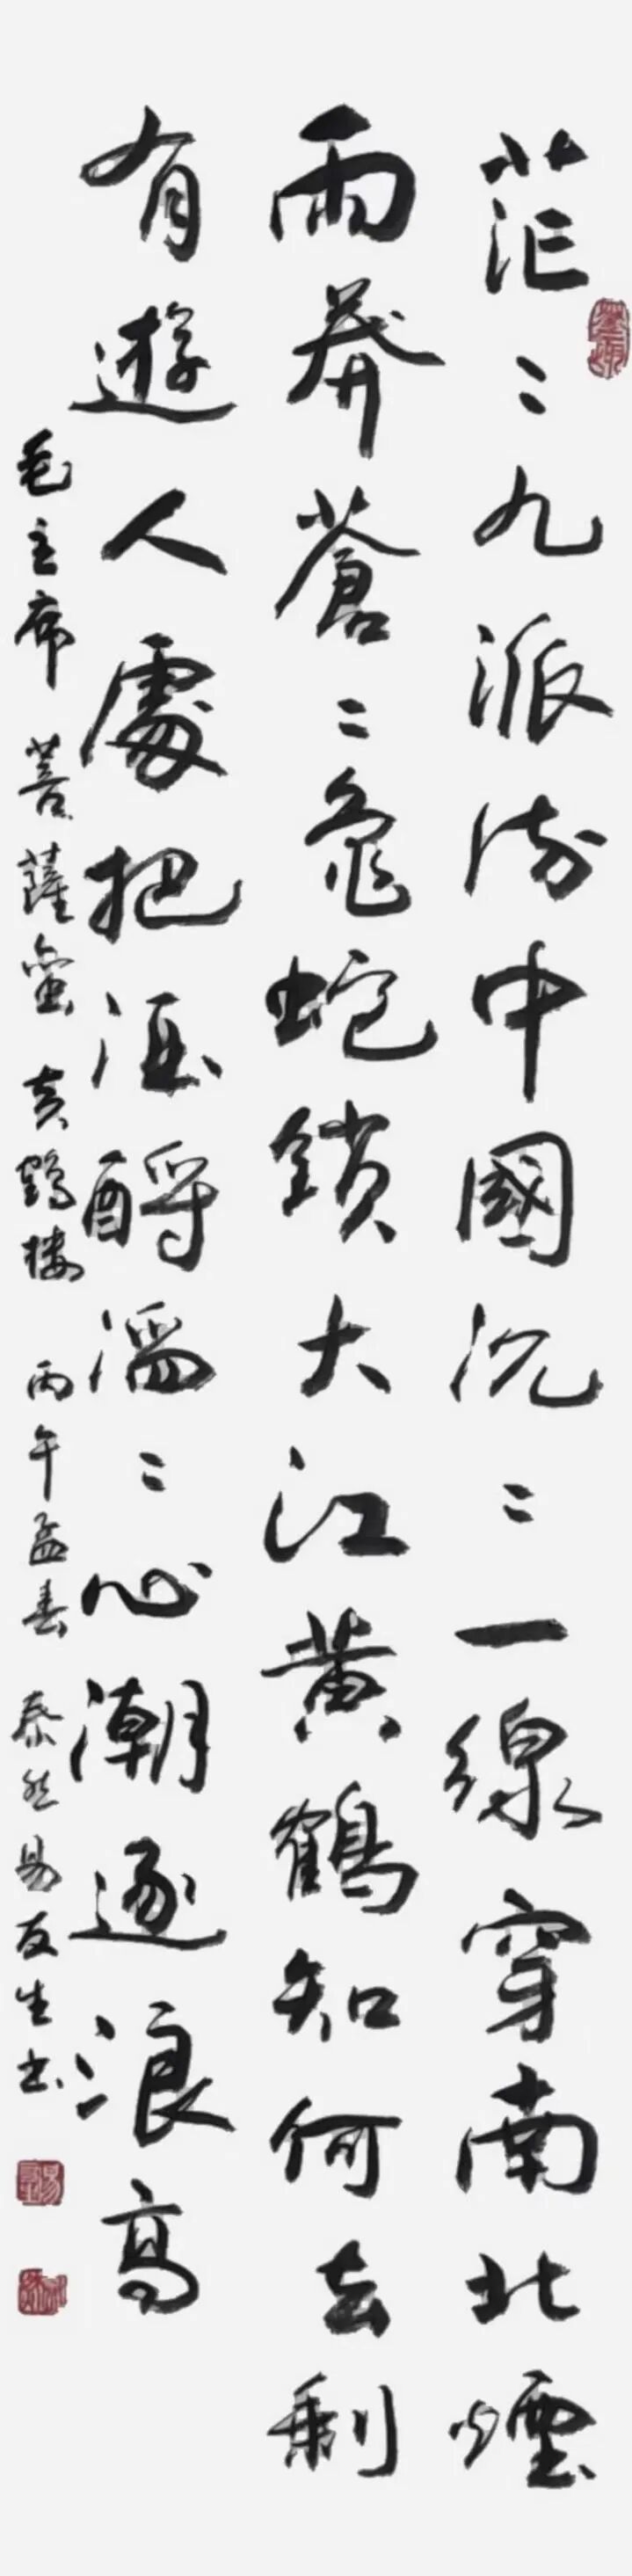 茫〻九派流中國沉〻一線穿南北煙
雨莽蒼〻龜蛇鎖大江黃鶴知何去剩
有遊人處把酒酹滔〻心潮逐浪高
毛主席 菩薩蠻 黃鶴樓 丙午孟春 泰然易友生書